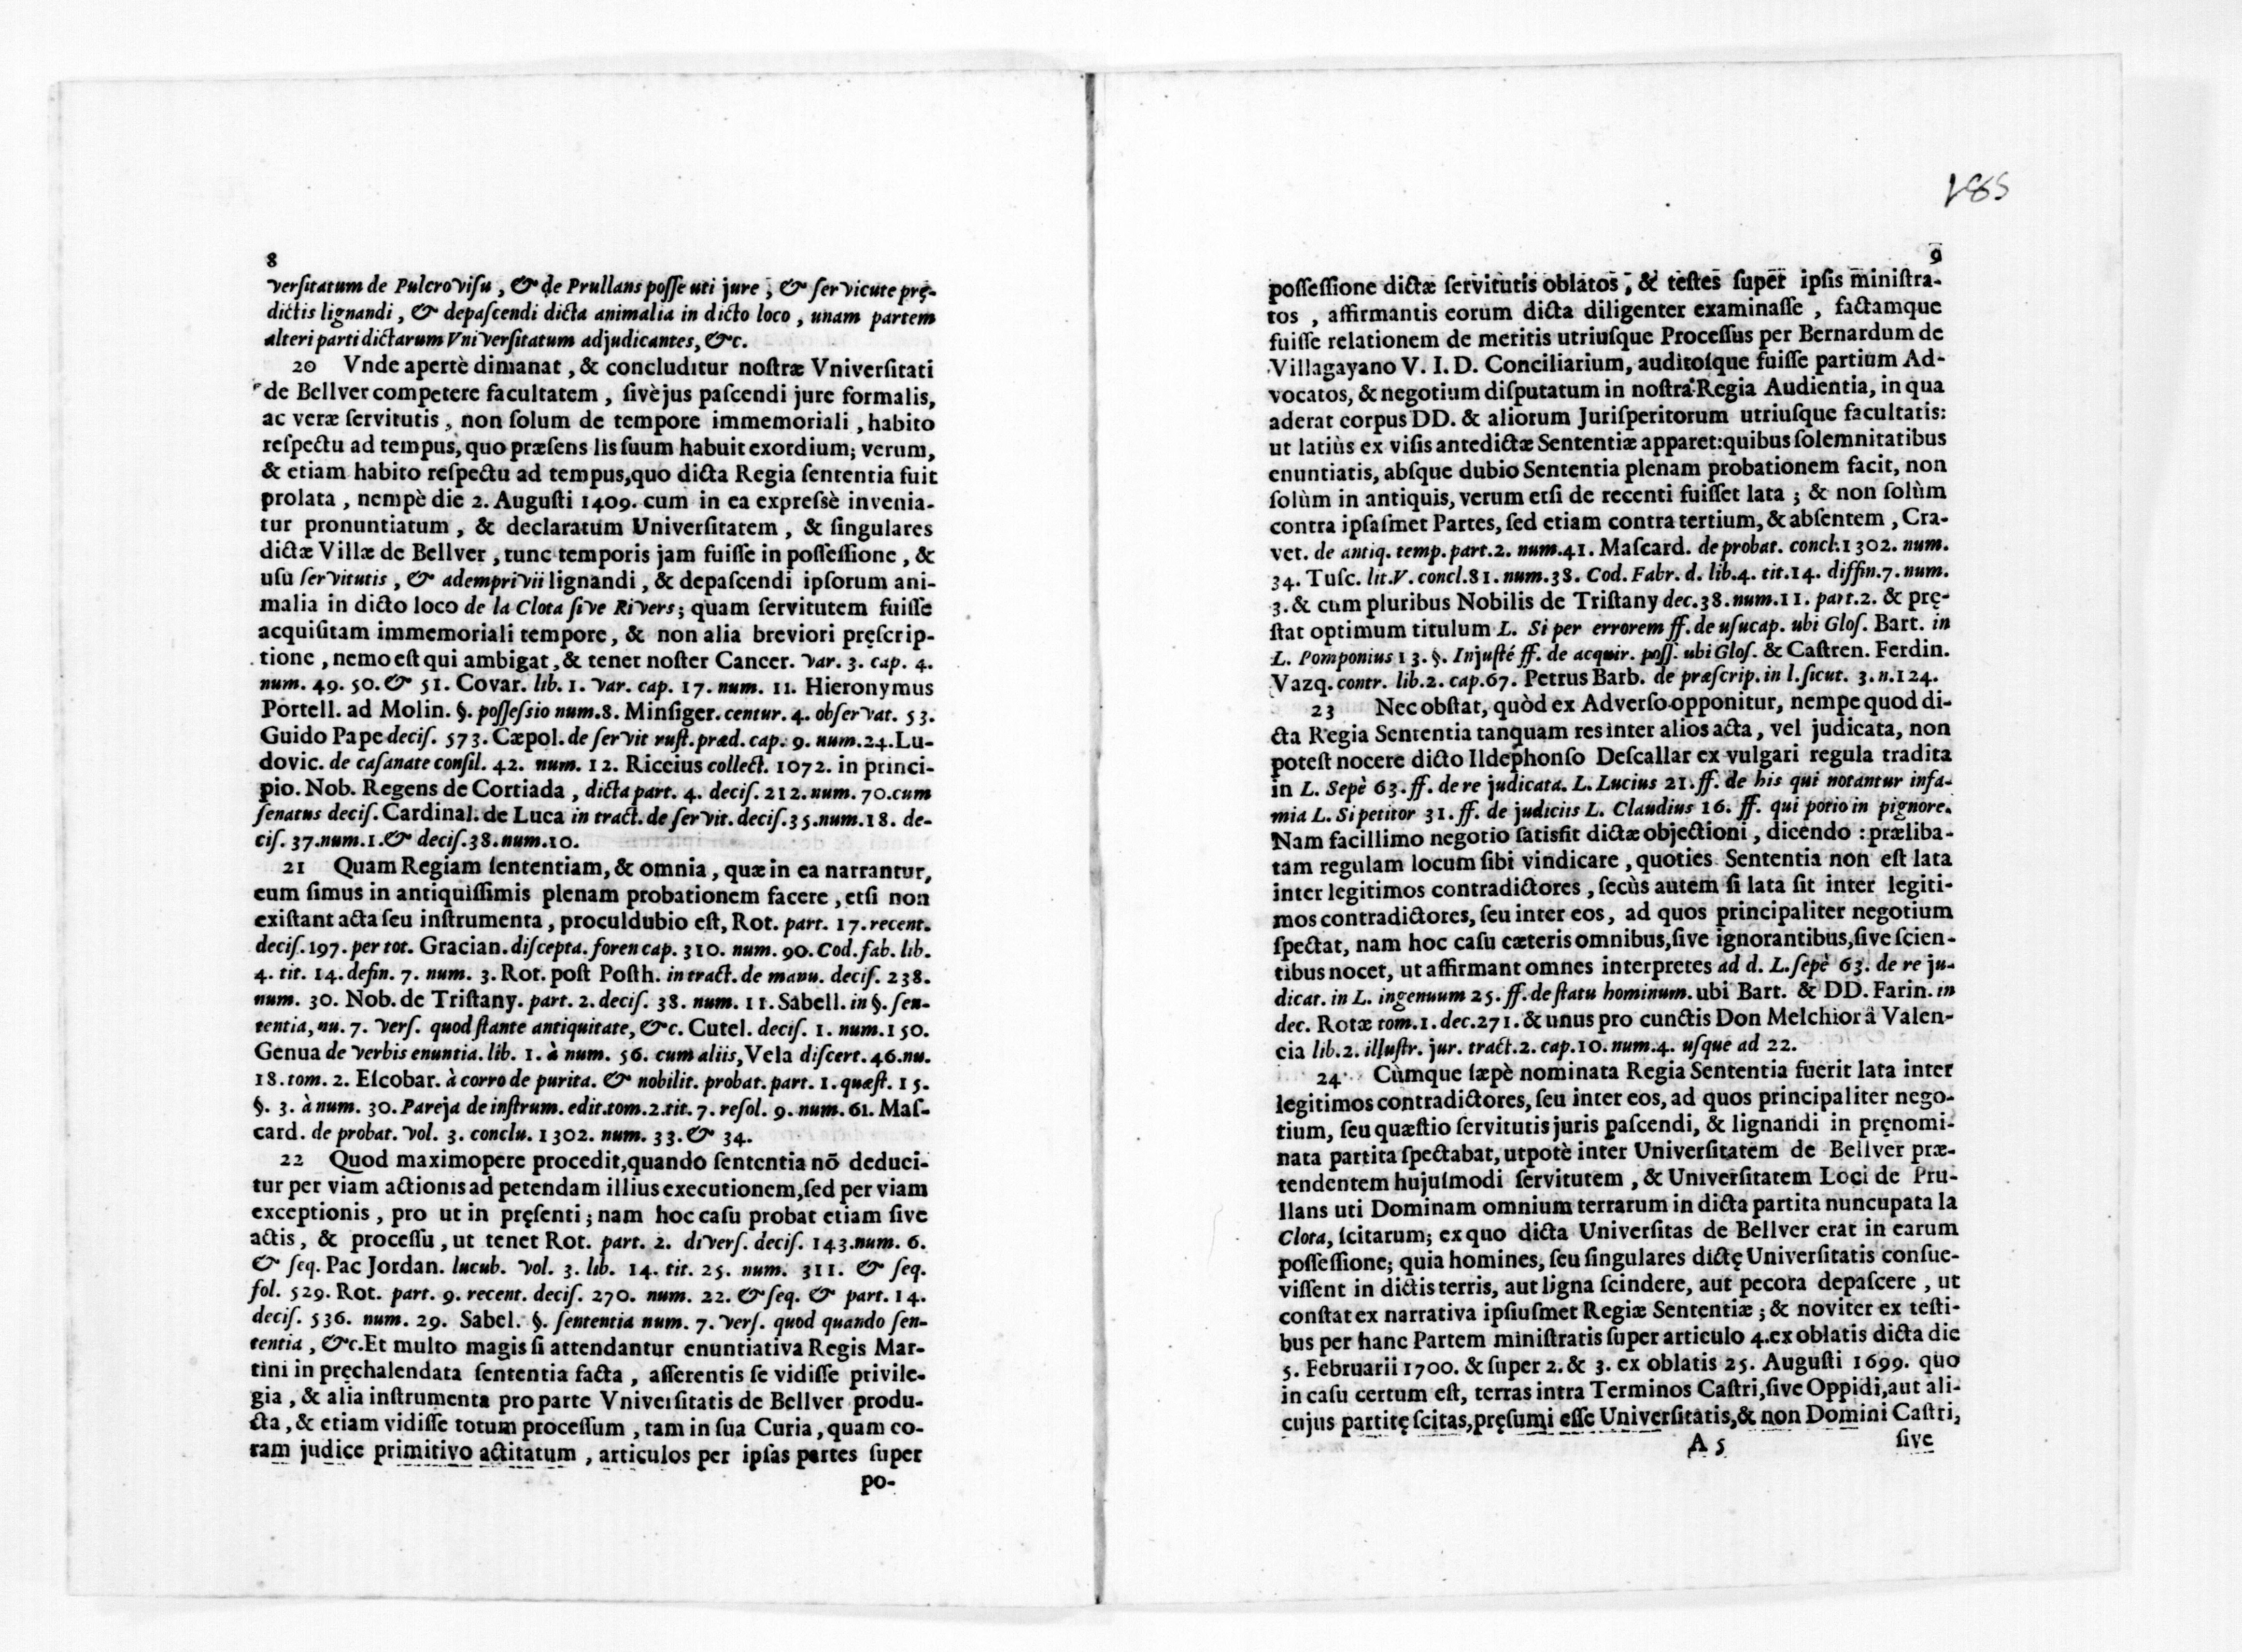 8
versitatum de Pulcrovisu, & de Prullans posse uti jure, & servicute prę-
dictis lignandi, & depascendi dicta animalia in dicto loco, unam partem
alteri parti dictarum Universitatum adjudicantes, &c.
20 Vnde apertè dimanat, & concluditur nostræ Vniversitati
de Bellver competere facultatem, sivè jus pascendi jure formalis,
ac veræ servitutis, non solum de tempore immemoriali, habito
respectu ad tempus, quo præsens lis suum habuit exordium; verum,
& etiam habito respectu ad tempus, quo dicta Regia sententia fuit
prolata, nempè die 2. Augusti 1409. cum in ea expressè invenia-
tur pronuntiatum, & declaratum Universitatem, & singulares
dictæ Villæ de Bellver, tunc temporis jam fuisse in possessione, &
usu servitutis, & ademprivii lignandi, & depascendi ipsorum ani-
malia in dicto loco de la Clota sive Rivers; quam servitutem fuisse
acquisitam immemoriali tempore, & non alia breviori pręscrip-
tione, nemo est qui ambigat, & tenet noster Cancer. var. 3. cap. 4.
num. 49. 50. & 51. Covar. lib. 1. var. cap. 17. num. 11. Hieronymus
Portell. ad Molin. §. possessio num. 8. Minsiger. centur. 4. observat. 53.
Guido Pape decis. 573. Cæpol. de servit rust. præd. cap. 9. num. 24. Lu-
dovic. de casanate consil. 42. num. 12. Riccius collect. 1072. in princi-
pio. Nob. Regens de Cortiada, dicta part. 4. decis. 212. num. 70. cum
senatus decis. Cardinal. de Luca in tract. de servit. decis. 35. num. 18. de-
cis. 37. num. 1. & decis. 38. num. 10.
21 Quam Regiam sententiam, & omnia, quæ in ea narrantur,
cum simus in antiquissimis plenam probationem facere, etsi non
existant acta seu instrumenta, proculdubio est, Rot. part. 17. recent.
decis. 197. per tot. Gracian. discepta. foren cap. 310. num. 90. Cod. fab. lib.
4. tit. 14. defin. 7. num. 3. Rot. post Posth. in tract. de manu. decis. 238.
num. 30. Nob. de Tristany. part. 2. decis. 38. num. 11. Sabell. in §. sen-
tentia, nu. 7. vers. quod stante antiquitate, &c. Cutel. decis. 1. num. 150.
Genua de verbis enuntia. lib. 1. à num. 56. cum aliis, Vela discert. 46. nu.
18. tom. 2. Escobar. à corro de purita. & nobilit. probat. part. 1. quæst. 15.
§. 3. à num. 30. Pareja de instrum. edit. tom. 2. tit. 7. resol. 9. num. 61. Mas-
card. de probat. vol. 3. conclu. 1302. num. 33. & 34.
22 Quod maximopere procedit, quando sententia nō deduci-
tur per viam actionis ad petendam illius executionem, sed per viam
exceptionis, pro ut in pręsenti; nam hoc casu probat etiam sive
actis, & processu, ut tenet Rot. part. 2. divers. decis. 143. num. 6.
& seq. Pac Jordan. lucub. vol. 3. lib. 14. tit. 25. num. 311. & seq.
fol. 529. Rot. part. 9. recent. decis. 270. num. 22. & seq. & part. 14.
decis. 536. num. 29. Sabel. §. sententia num. 7. vers. quod quando sen-
tentia, &c. Et multo magis si attendantur enuntiativa Regis Mar-
tini in pręchalendata sententia facta, asserentis se vidisse privile-
gia, & alia instrumenta pro parte Vniversitatis de Bellver produ-
cta, & etiam vidisse totum processum, tam in sua Curia, quam co-
ram judice primitivo actitatum, articulos per ipsas partes super
po-
185
9
possessione dictæ servitutis oblatos, & testes super ipsis ministra-
tos, affirmantis eorum dicta diligenter examinasse, factamque
fuisse relationem de meritis utriusque Processus per Bernardum de
Villagayano V. I. D. Conciliarium, auditosque fuisse partium Ad-
vocatos, & negotium disputatum in nostra Regia Audientia, in qua
aderat corpus DD. & aliorum Jurisperitorum utriusque facultatis:
ut latiùs ex visis antedictæ Sententiæ apparet: quibus solemnitatibus
enuntiatis, absque dubio Sententia plenam probationem facit, non
solùm in antiquis, verum etsi de recenti fuisset lata; & non solùm
contra ipsasmet Partes, sed etiam contra tertium, & absentem, Cra-
vet. de antiq. temp. part. 2. num. 41. Mascard. de probat. concl. 1302. num.
34. Tusc. lit. V. concl. 81. num. 38. Cod. Fabr. d. lib. 4. tit. 14. diffin. 7. num.
3. & cum pluribus Nobilis de Tristany dec. 38. num. 11. part. 2. & prę-
stat optimum titulum L. Si per errorem ff. de usucap. ubi Glos. Bart. in
L. Pomponius 13. §. Injusté ff. de acquir. poss. ubi Glos. & Castren. Ferdin.
Vazq. contr. lib. 2. cap. 67. Petrus Barb. de præscrip. in l. sicut. 3. n. 124.
23 Nec obstat, quòd ex Adverso opponitur, nempe quod di-
cta Regia Sententia tanquam res inter alios acta, vel judicata, non
potest nocere dicto Ildephonso Descallar ex vulgari regula tradita
in L. Sepè 63. ff. de re judicata. L. Lucius 21. ff. de his qui notantur infa-
mia L. Si petitor 31. ff. de judiciis L. Claudius 16. ff. qui potio in pignore.
Nam facillimo negotio satisfit dictæ objectioni, dicendo: præliba-
tam regulam locum sibi vindicare, quoties Sententia non est lata
inter legitimos contradictores, secùs autem si lata sit inter legiti-
mos contradictores, seu inter eos, ad quos principaliter negotium
spectat, nam hoc casu cæteris omnibus, sive ignorantibus, sive scien-
tibus nocet, ut affirmant omnes interpretes ad d. L. sepè 63. de re ju-
dicat. in L. ingenuum 25. ff. de statu hominum. ubi Bart. & DD. Farin. in
dec. Rotæ tom. 1. dec. 271. & unus pro cunctis Don Melchior â Valen-
cia lib. 2. illustr. jur. tract. 2. cap. 10. num. 4. usque ad 22.
24 Cùmque sæpè nominata Regia Sententia fuerit lata inter
legitimos contradictores, seu inter eos, ad quos principaliter nego-
tium, seu quæstio servitutis juris pascendi, & lignandi in pręnomi-
nata partita spectabat, utpotè inter Universitatem de Bellver præ-
tendentem hujusmodi servitutem, & Universitatem Loci de Pru-
llans uti Dominam omnium terrarum in dicta partita nuncupata la
Clota, scitarum; ex quo dicta Universitas de Bellver erat in earum
possessione; quia homines, seu singulares dictę Universitatis consue-
vissent in dictis terris, aut ligna scindere, aut pecora depascere, ut
constat ex narrativa ipsiusmet Regiæ Sententiæ; & noviter ex testi-
bus per hanc Partem ministratis super articulo 4. ex oblatis dicta die
5. Februarii 1700. & super 2. & 3. ex oblatis 25. Augusti 1699. quo
in casu certum est, terras intra Terminos Castri, sive Oppidi, aut ali-
cujus partitę scitas, pręsumi esse Universitatis, & non Domini Castri,
A 5 sive